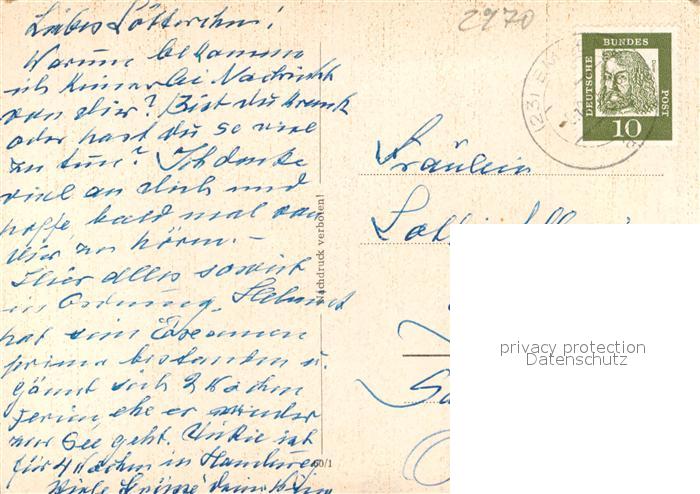 Liebes Lotterchen!
Warum bekomme
ich keinerlei Nachricht
von dir? Bist du krank
oder hast du so viel
zu tun? Ich denke
viel an dich und
hoffe, bald mal von
dir zu hören. –
Hier alles soweit
in Ordnung. Helmut
hat sein Examen
prima bestanden u.
gönnt sich 2 Wochen
Ferien, ehe er wieder
zur See geht. Ulrike ist
für 4 Wochen in Hamburg
Viele Grüße deine
2970
DEUTSCHE BUNDES POST
10
Nachdruck verboten!
60/1
Fräulein
privacy protection
Datenschutz